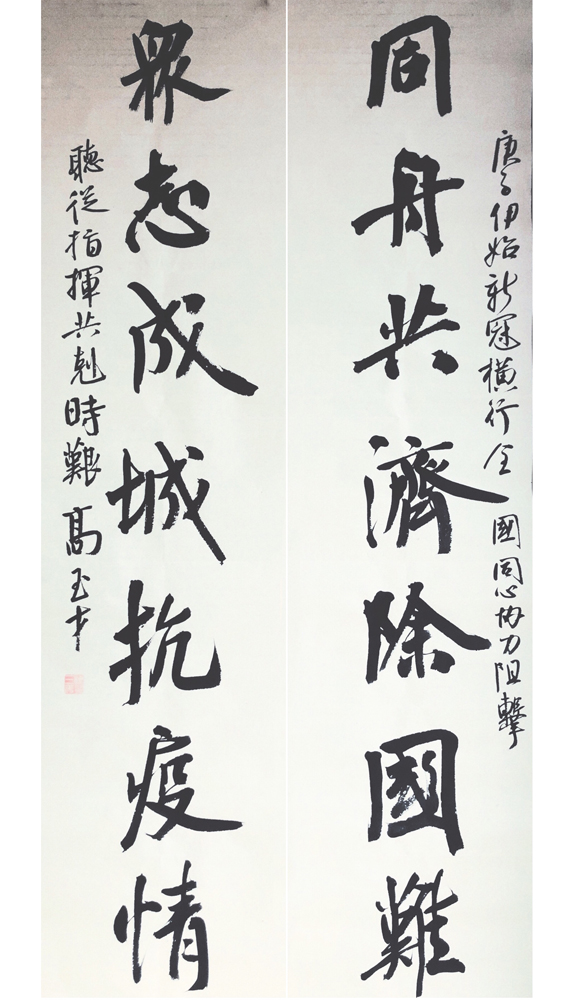 庚子伊始新冠橫行全國同心协力阻擊
同舟共濟除國難
眾志成城抗疫情
聽從指揮共尅時艱 高玉中